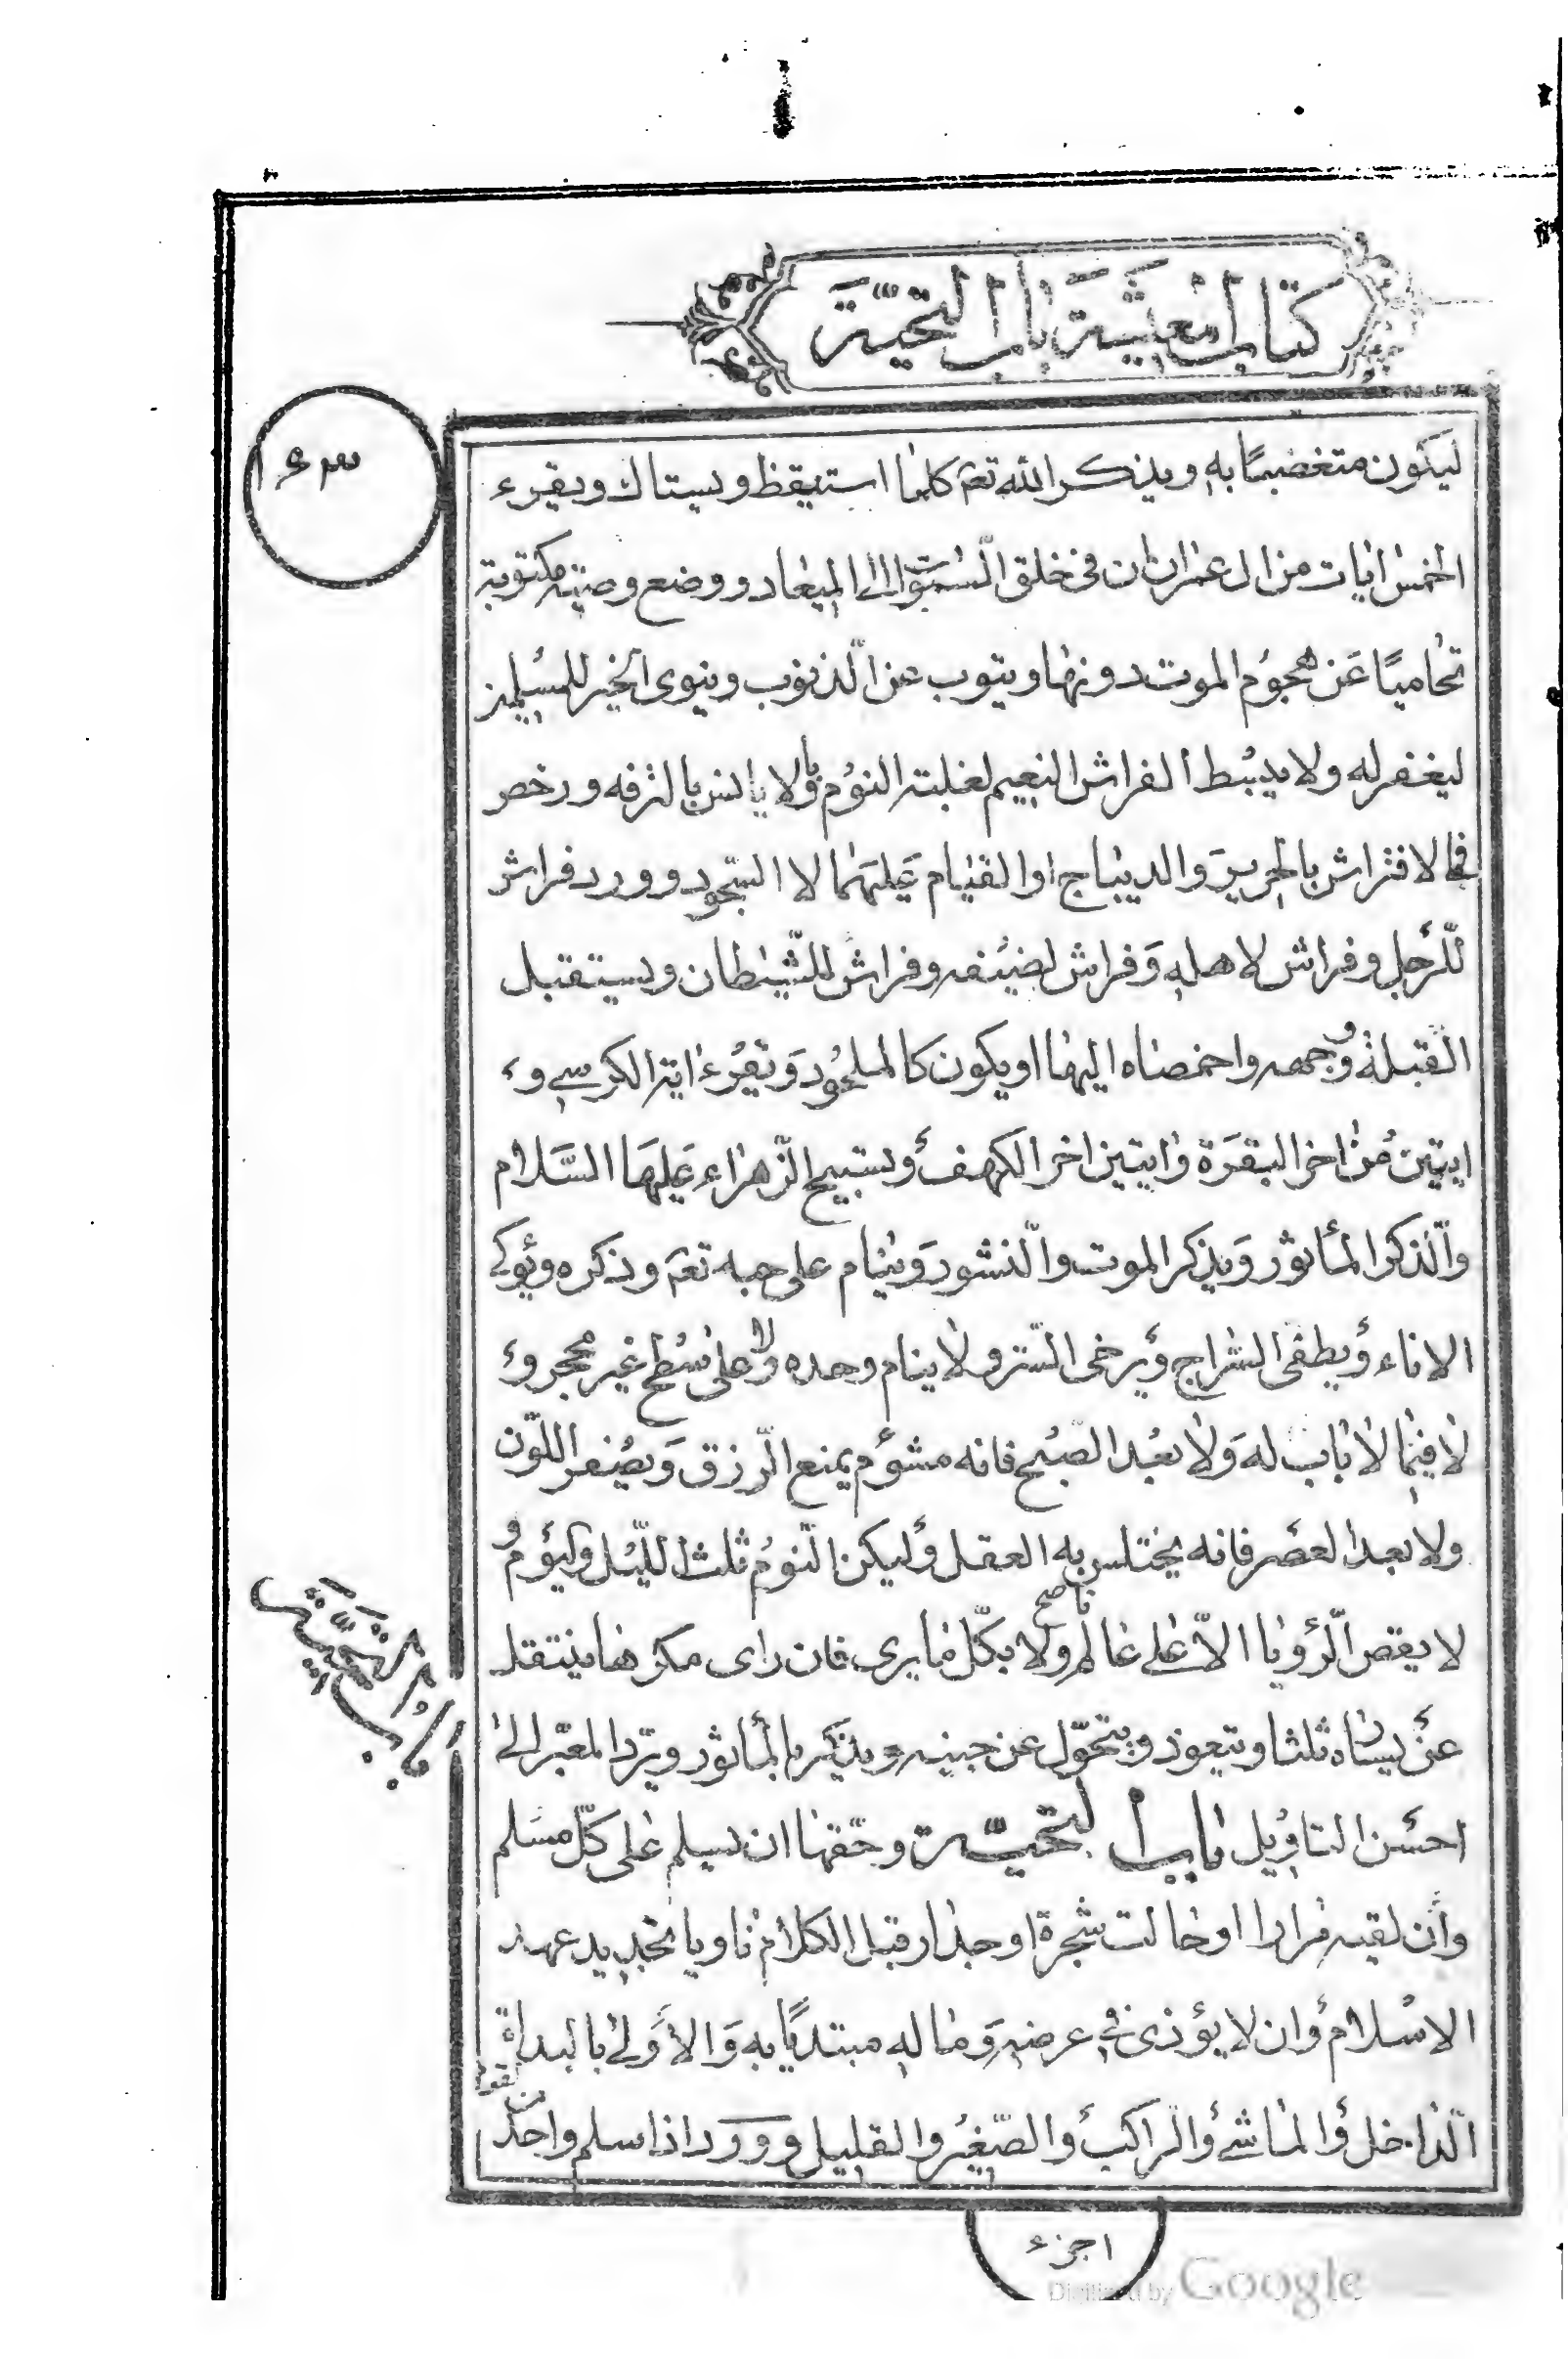 كتاب المعيشة باب التحيّة
١٤٣
ليكون متغضبًا به ويذكر الله تعم كلما استيقظ ويستاك ويقرء
الخمس ايات من ال عمران ان فى خلق السّموات الى الميعاد ووضع وصيته مكتوبة
تحاميًا عن هجوم الموت دونها ويتوب عن الذنوب وينوى الخير للمسلمين
ليغفر له ولا يبسط الفراش النعيم لغلبة النوم ولا باس بالترفه ورخص
فى الافتراش بالحرير والديباج او القيام عليهما لا السّجود وورد فراش
للرّجل وفراش لاهله وفراش لضيفه وفراش للشّيطان ويستقبل
القبلة وجهه واخمصاه اليها او يكون كالملحود ويقرء اية الكرسي و
ايتين من اخر البقرة وايتين اخر الكهف وتسبيح الزّهراء عليها السّلام
والّذكر المأثور ويذكر الموت والنّشور وينام على حبه تعم وذكره ويؤكى
الاناء ويطفى السّراج ويرخى السّتر ولا ينام وحده ولا على سطح غير محجر و
لا فيما لا باب له ولا بعد الصّبح فانه مشؤم يمنع الرّزق ويصفر اللّون
ولا بعد العصر فانه يختلس به العقل وليكن النّوم ثلث اللّيل واليوم و
لا يقص الرّؤيا الاّ على عالم ناصح ولا بكلّ ما يرى فان راى مكرها فينتقل
عن يساره ثلثا ويتعوذ ويتحوّل عن جبينه ويذكر بالمأثور ويرّد المعبّر الى
احسن التاويل باب التحيّة وحقها ان يسلم على كلّ مسلم
وان لقيه مرارا او حالت شجرة او جدار قبل الكلام ناويا تجديد عهد
الاسلام وان لا يؤذى فى عرضه وماله مبتديًا به والاولى بالبداة
الّداخل والماشى والراكب والصّغير والقليل وورد اذا سلم واحد
باب التحيّة
١ جزء
Digitized by Google